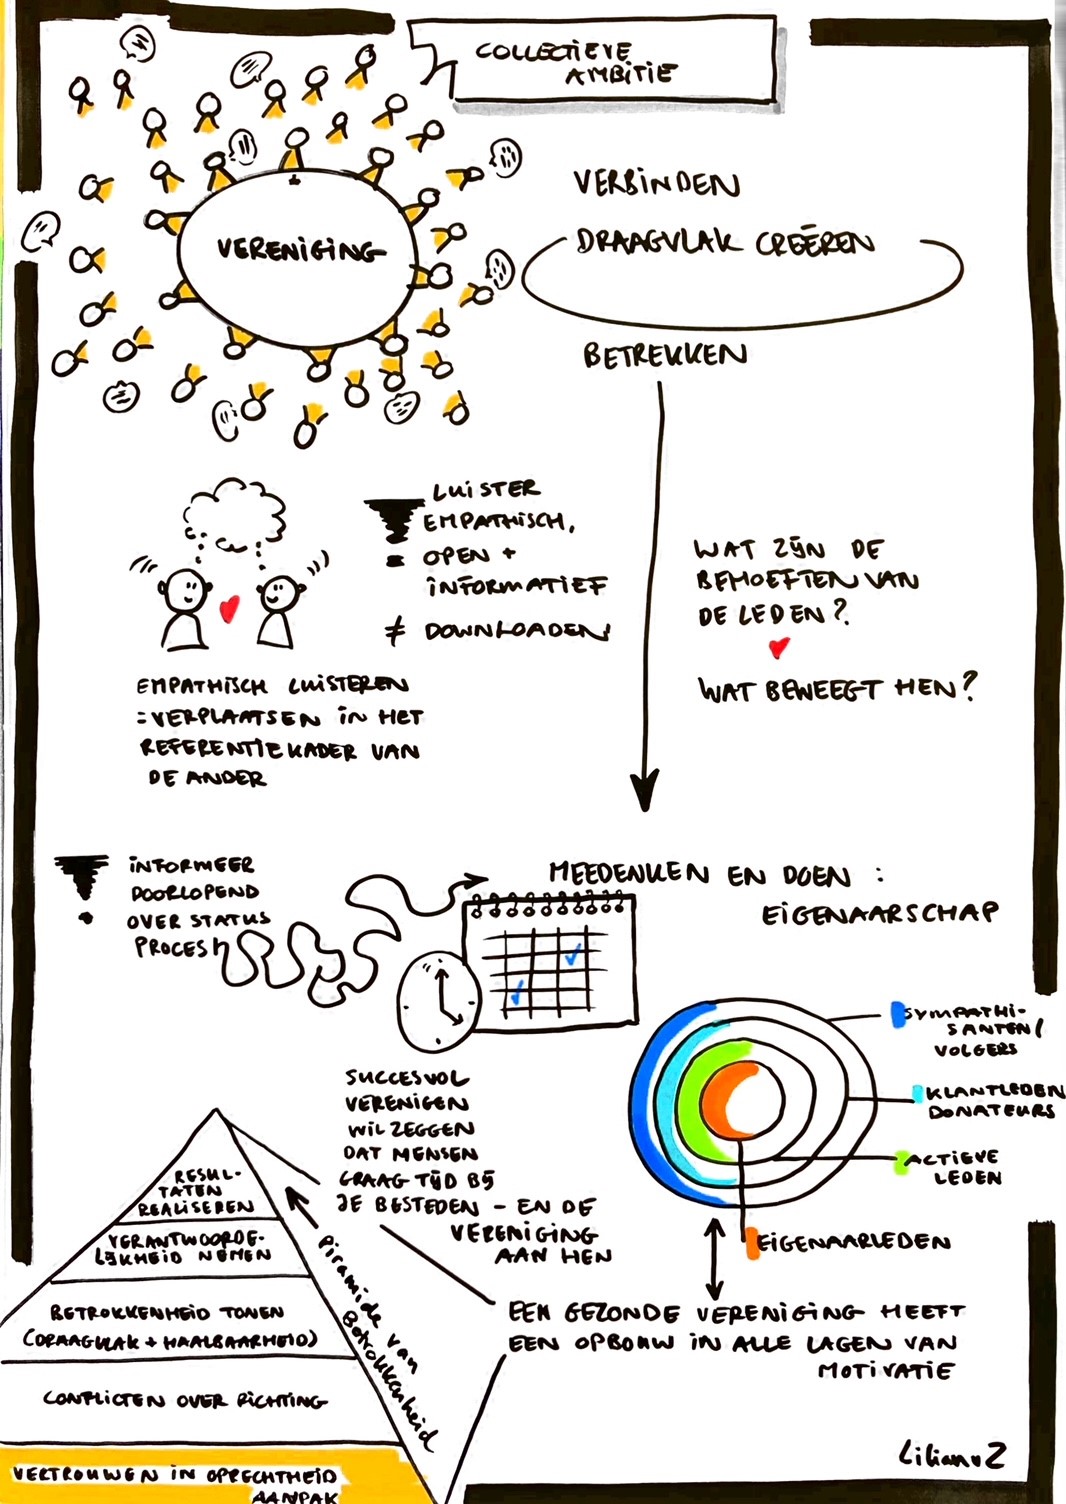 COLLECTIEVE
AMBITIE
VERENIGING
VERBINDEN
DRAAGVLAK CREËREN
BETREKKEN
LUISTER
EMPATHISCH,
OPEN +
INFORMATIEF
≠ DOWNLOADEN!
EMPATHISCH LUISTEREN
=VERPLAATSEN IN HET
REFERENTIEKADER VAN
DE ANDER
WAT ZIJN DE
BEHOEFTEN VAN
DE LEDEN?
WAT BEWEEGT HEN?
INFORMEER
DOORLOPEND
OVER STATUS
PROCES!
MEEDENKEN EN DOEN :
EIGENAARSCHAP
SYMPATHI-
SANTEN/
VOLGERS
KLANTLEDEN
DONATEURS
ACTIEVE
LEDEN
EIGENAARLEDEN
SUCCESVOL
VERENIGEN
WIL ZEGGEN
DAT MENSEN
GRAAG TIJD BIJ
JE BESTEDEN - EN DE
VERENIGING
AAN HEN
EEN GEZONDE VERENIGING HEEFT
EEN OPBOUW IN ALLE LAGEN VAN
MOTIVATIE
RESUL-
TATEN
REALISEREN
VERANTWOORDE-
LIJKHEID NEMEN
BETROKKENHEID TONEN
(DRAAGVLAK + HAALBAARHEID)
CONFLICTEN OVER RICHTING
VERTROUWEN IN OPRECHTHEID
AANPAK
Piramide van
Betrokkenheid
LilianvZ